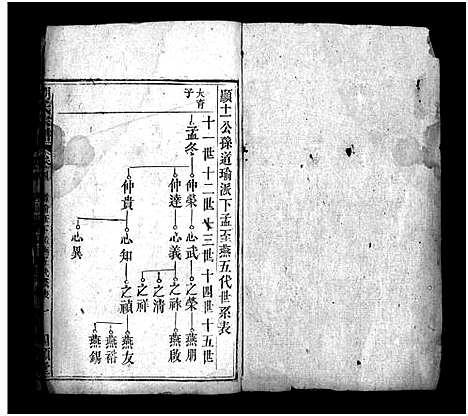 顯十一公孫道瑜派下孟至燕五代世系表
十一世十二世十三世十四世十五世
大育
子
孟冬
仲榮
心武
之榮
燕朋
仲達
心義
之祚
燕啟
之清
之祥
仲貴
心知
之禎
燕友
燕裕
燕錫
心異